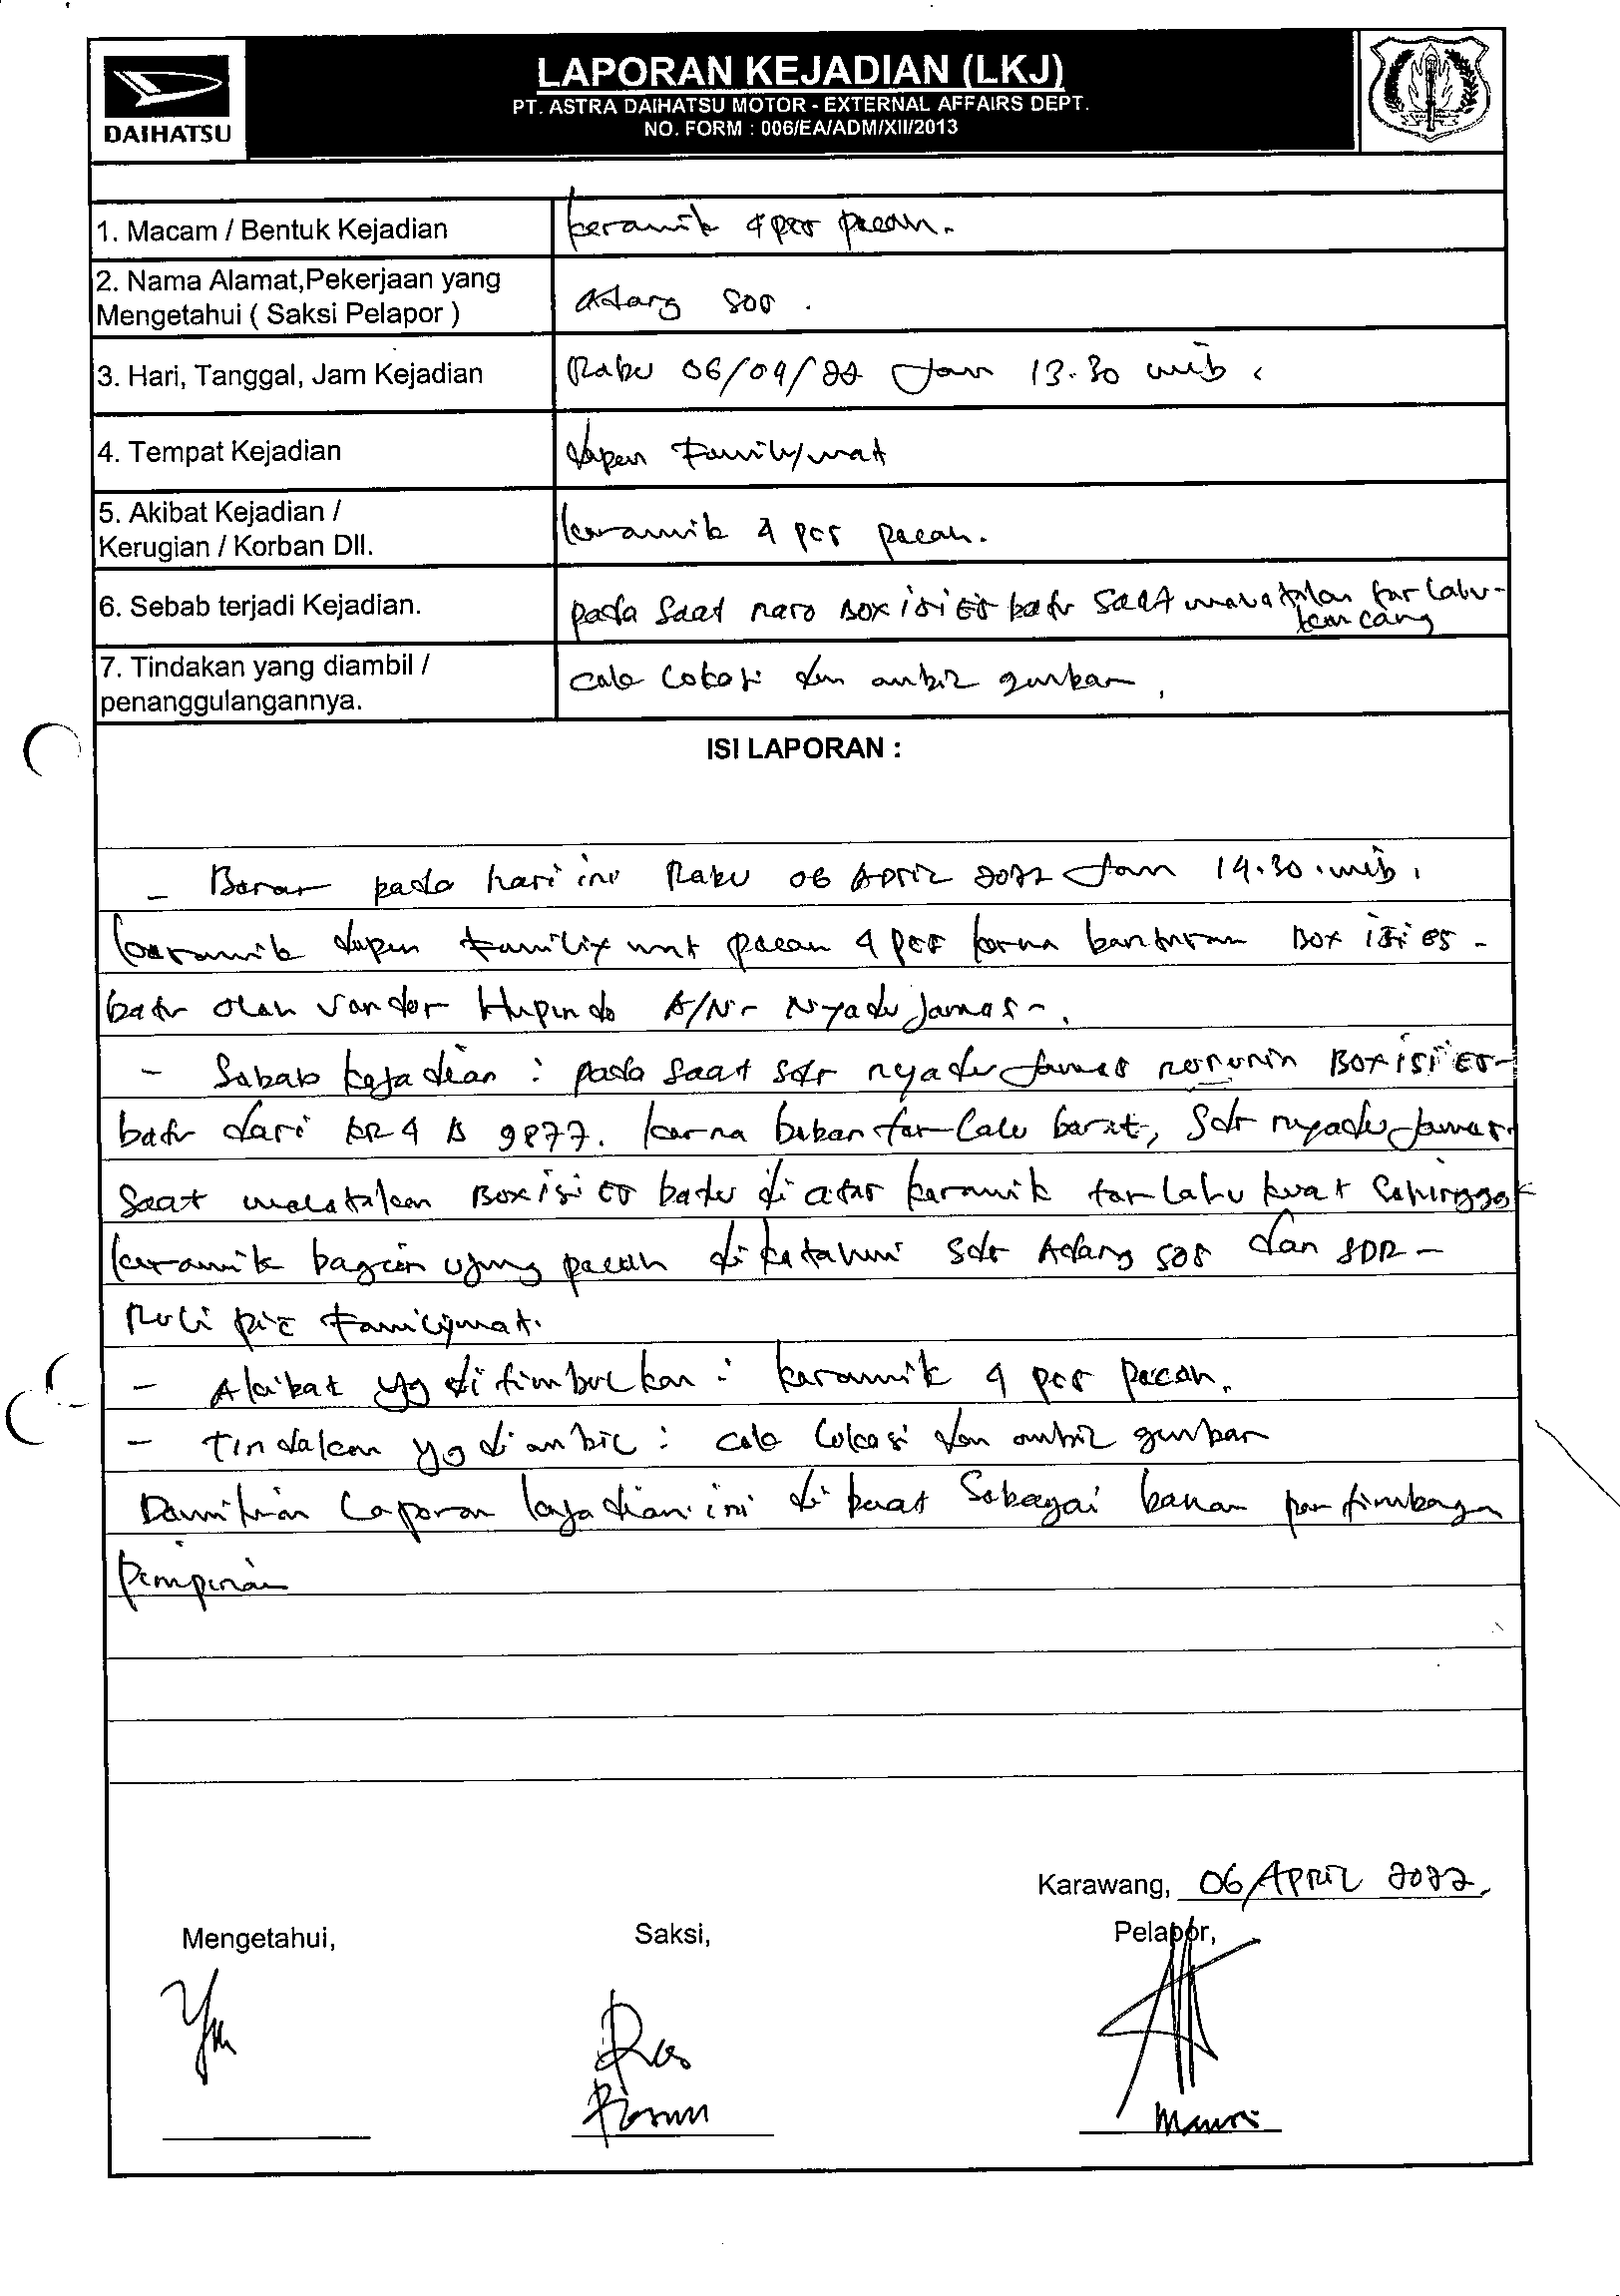 DAIHATSU
LAPORAN KEJADIAN (LKJ)
PT. ASTRA DAIHATSU MOTOR - EXTERNAL AFFAIRS DEPT.
NO. FORM : 006/EA/ADM/XII/2013
1. Macam / Bentuk Kejadian
keramik 4 pcs pecah.
2. Nama Alamat,Pekerjaan yang
Mengetahui ( Saksi Pelapor )
Adang sos .
3. Hari, Tanggal, Jam Kejadian
Rabu 06/04/22 Jam 13.30 wib.
4. Tempat Kejadian
depan Familymat
5. Akibat Kejadian /
Kerugian / Korban Dll.
keramik 4 pcs pecah.
6. Sebab terjadi Kejadian.
pada saat naro Box isi es batu saat meletakan terlalu-
kencang
7. Tindakan yang diambil /
penanggulangannya.
cek lokasi dan ambil gambar,
ISI LAPORAN :
- Benar pada hari ini Rabu 06 April 2022 Jam 14.30 wib,
keramik depan pecah 4 pcs karna benturan Box isi es -
batu oleh Vendor Hupindo A/N- Nyadu Jamas-.
- Sebab kejadian : pada saat sdr nyadu Jamas nurunin Box isi es-
batu dari KR4 B 9877. karna beban terlalu berat, Sdr nyadu Jamas
saat meletakan Box isi es batu di atas keramik terlalu kuat sehingga
keramik bagian ujung pecah di ketahui sdr Adang sos dan SDR -
Ruli pic Familymat.
- Akibat yg di timbulkan : keramik 4 pcs pecah.
- Tindakan yg di ambil : cek lokasi dan ambil gambar
Demikian Laporan kejadian ini di buat sebagai bahan pertimbangan
Pimpinan
Karawang, 06 APRIL 2022.
Mengetahui,
Saksi,
Pelapor,